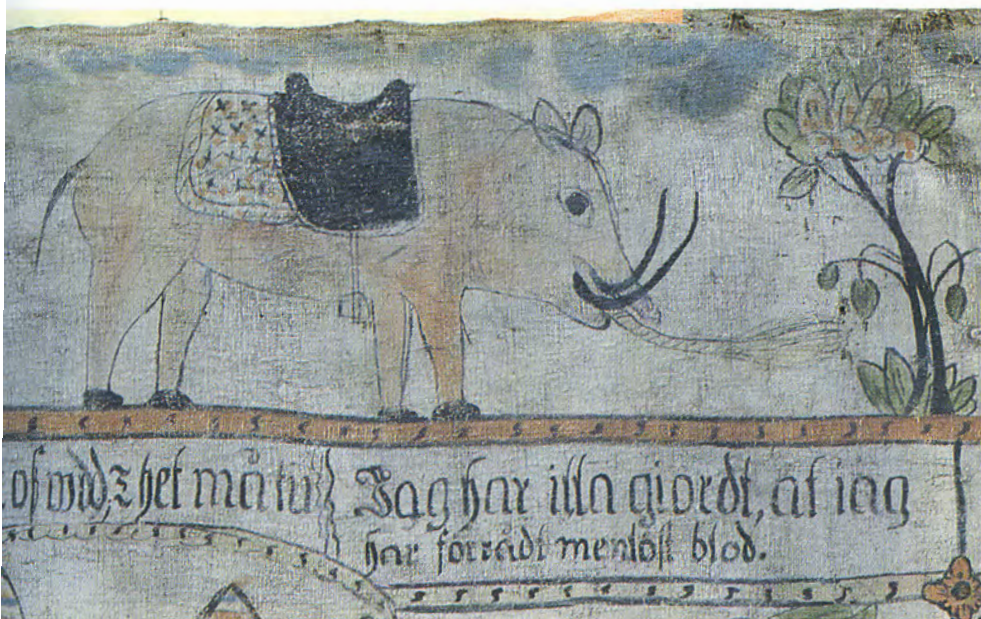 het
Jag har illa giordt, at iag
har förrådt menlöst blod.